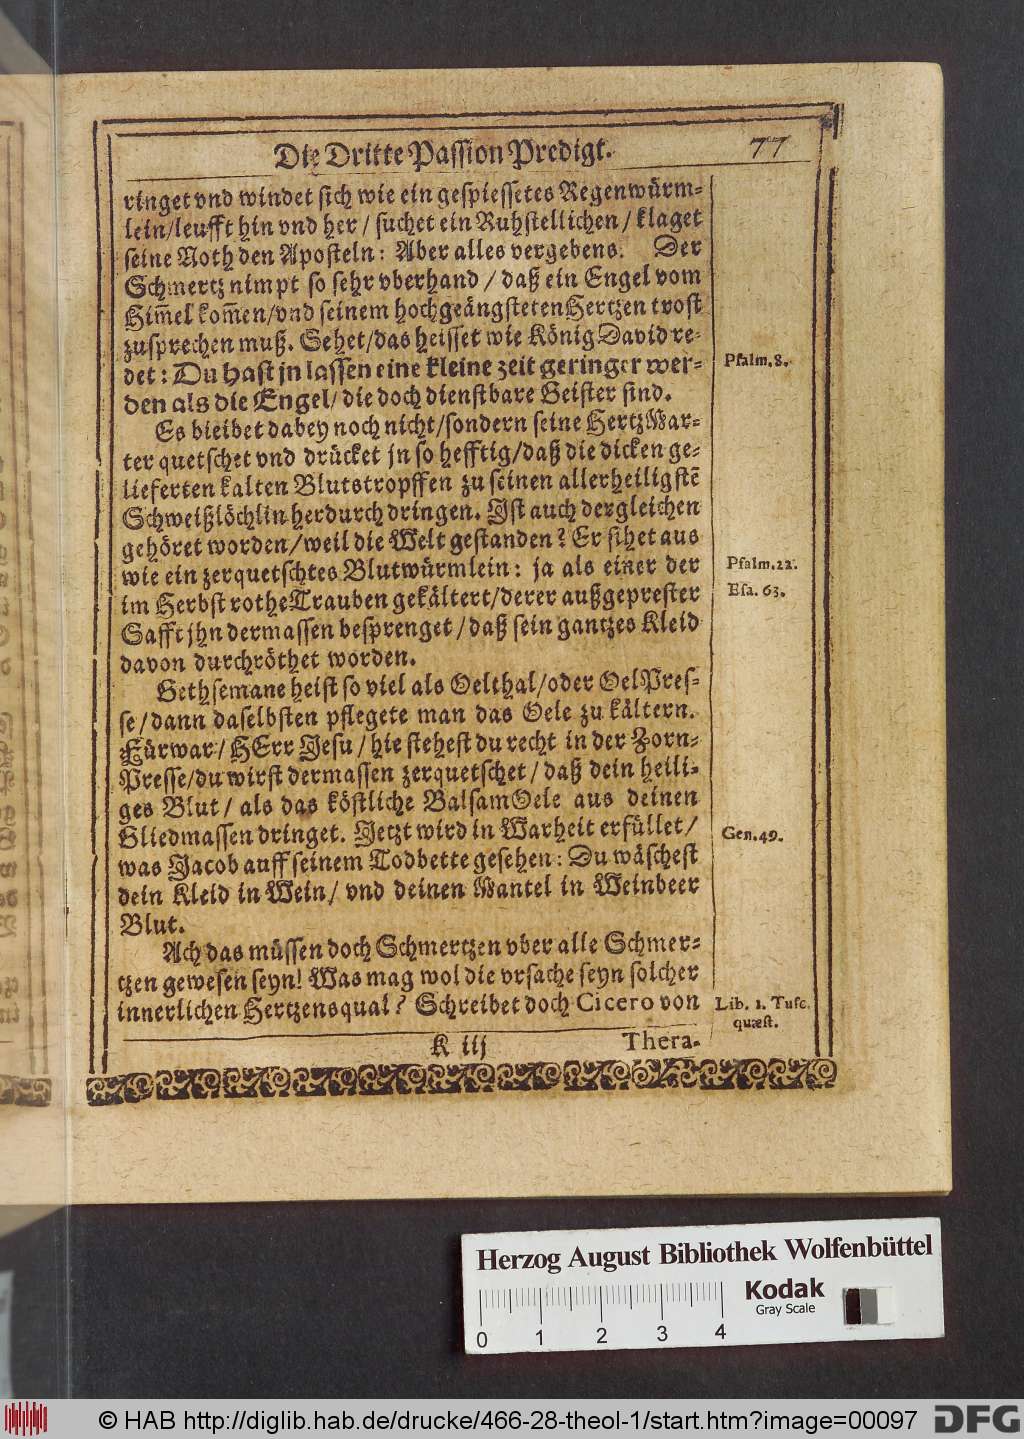 Die Dritte Passion Predigt. 77
ringet vnd windet sich wie ein gespiessetes Regenwürm-
lein/leufft hin vnd her / suchet ein Ruhstellichen / klaget
seine Noth den Aposteln: Aber alles vergebens. Der
Schmertz nimpt so sehr vberhand / daß ein Engel vom
Him̃el kom̃en/vnd seinem hochgeängsteten Hertzen trost
zusprechen muß. Sehet/das heisset wie König David re-
det: Du hast jn lassen eine kleine zeit geringer wer-
Psalm.8.
den als die Engel/ die doch dienstbare Geister sind.
Es bleibet dabey noch nicht/sondern seine HertzMar-
ter quetschet vnd drücket jn so hefftig/daß die dicken ge-
lieferten kalten Blutstropffen zu seinen allerheiligstẽ
Schweißlöchlin herdurch dringen. Ist auch dergleichen
gehöret worden/weil die Welt gestanden? Er sihet aus
wie ein zerquetschtes Blutwürmlein: ja als einer der
Psalm.22.
im Herbst rothe Trauben gekältert/derer außgeprester
Esa. 63.
Safft jhn dermassen besprenget/daß sein gantzes Kleid
davon durchröthet worden.
Gethsemane heist so viel als Oelthal/oder OelPres-
se/dann daselbsten pflegete man das Oele zu kältern.
Fürwar/ HErr Jesu / hie stehest du recht in der Zorn-
Presse/du wirst dermassen zerquetschet / daß dein heili-
ges Blut / als das köstliche BalsamOele aus deinen
Gliedmassen dringet. Jetzt wird in Warheit erfüllet/
Gen.49.
was Jacob auff seinem Todbette gesehen: Du wäschest
dein Kleid in Wein/ vnd deinen Mantel in Weinbeer
Blut.
Ach das müssen doch Schmertzen vber alle Schmer-
tzen gewesen seyn! Was mag wol die vrsache seyn solcher
innerlichen Hertzensqual? Schreibet doch Cicero von
Lib. 1. Tusc.
quæst.
K iij Thera-
Herzog August Bibliothek Wolfenbüttel
Kodak
Gray Scale
0 1 2 3 4
© HAB http://diglib.hab.de/drucke/466-28-theol-1/start.htm?image=00097
DFG